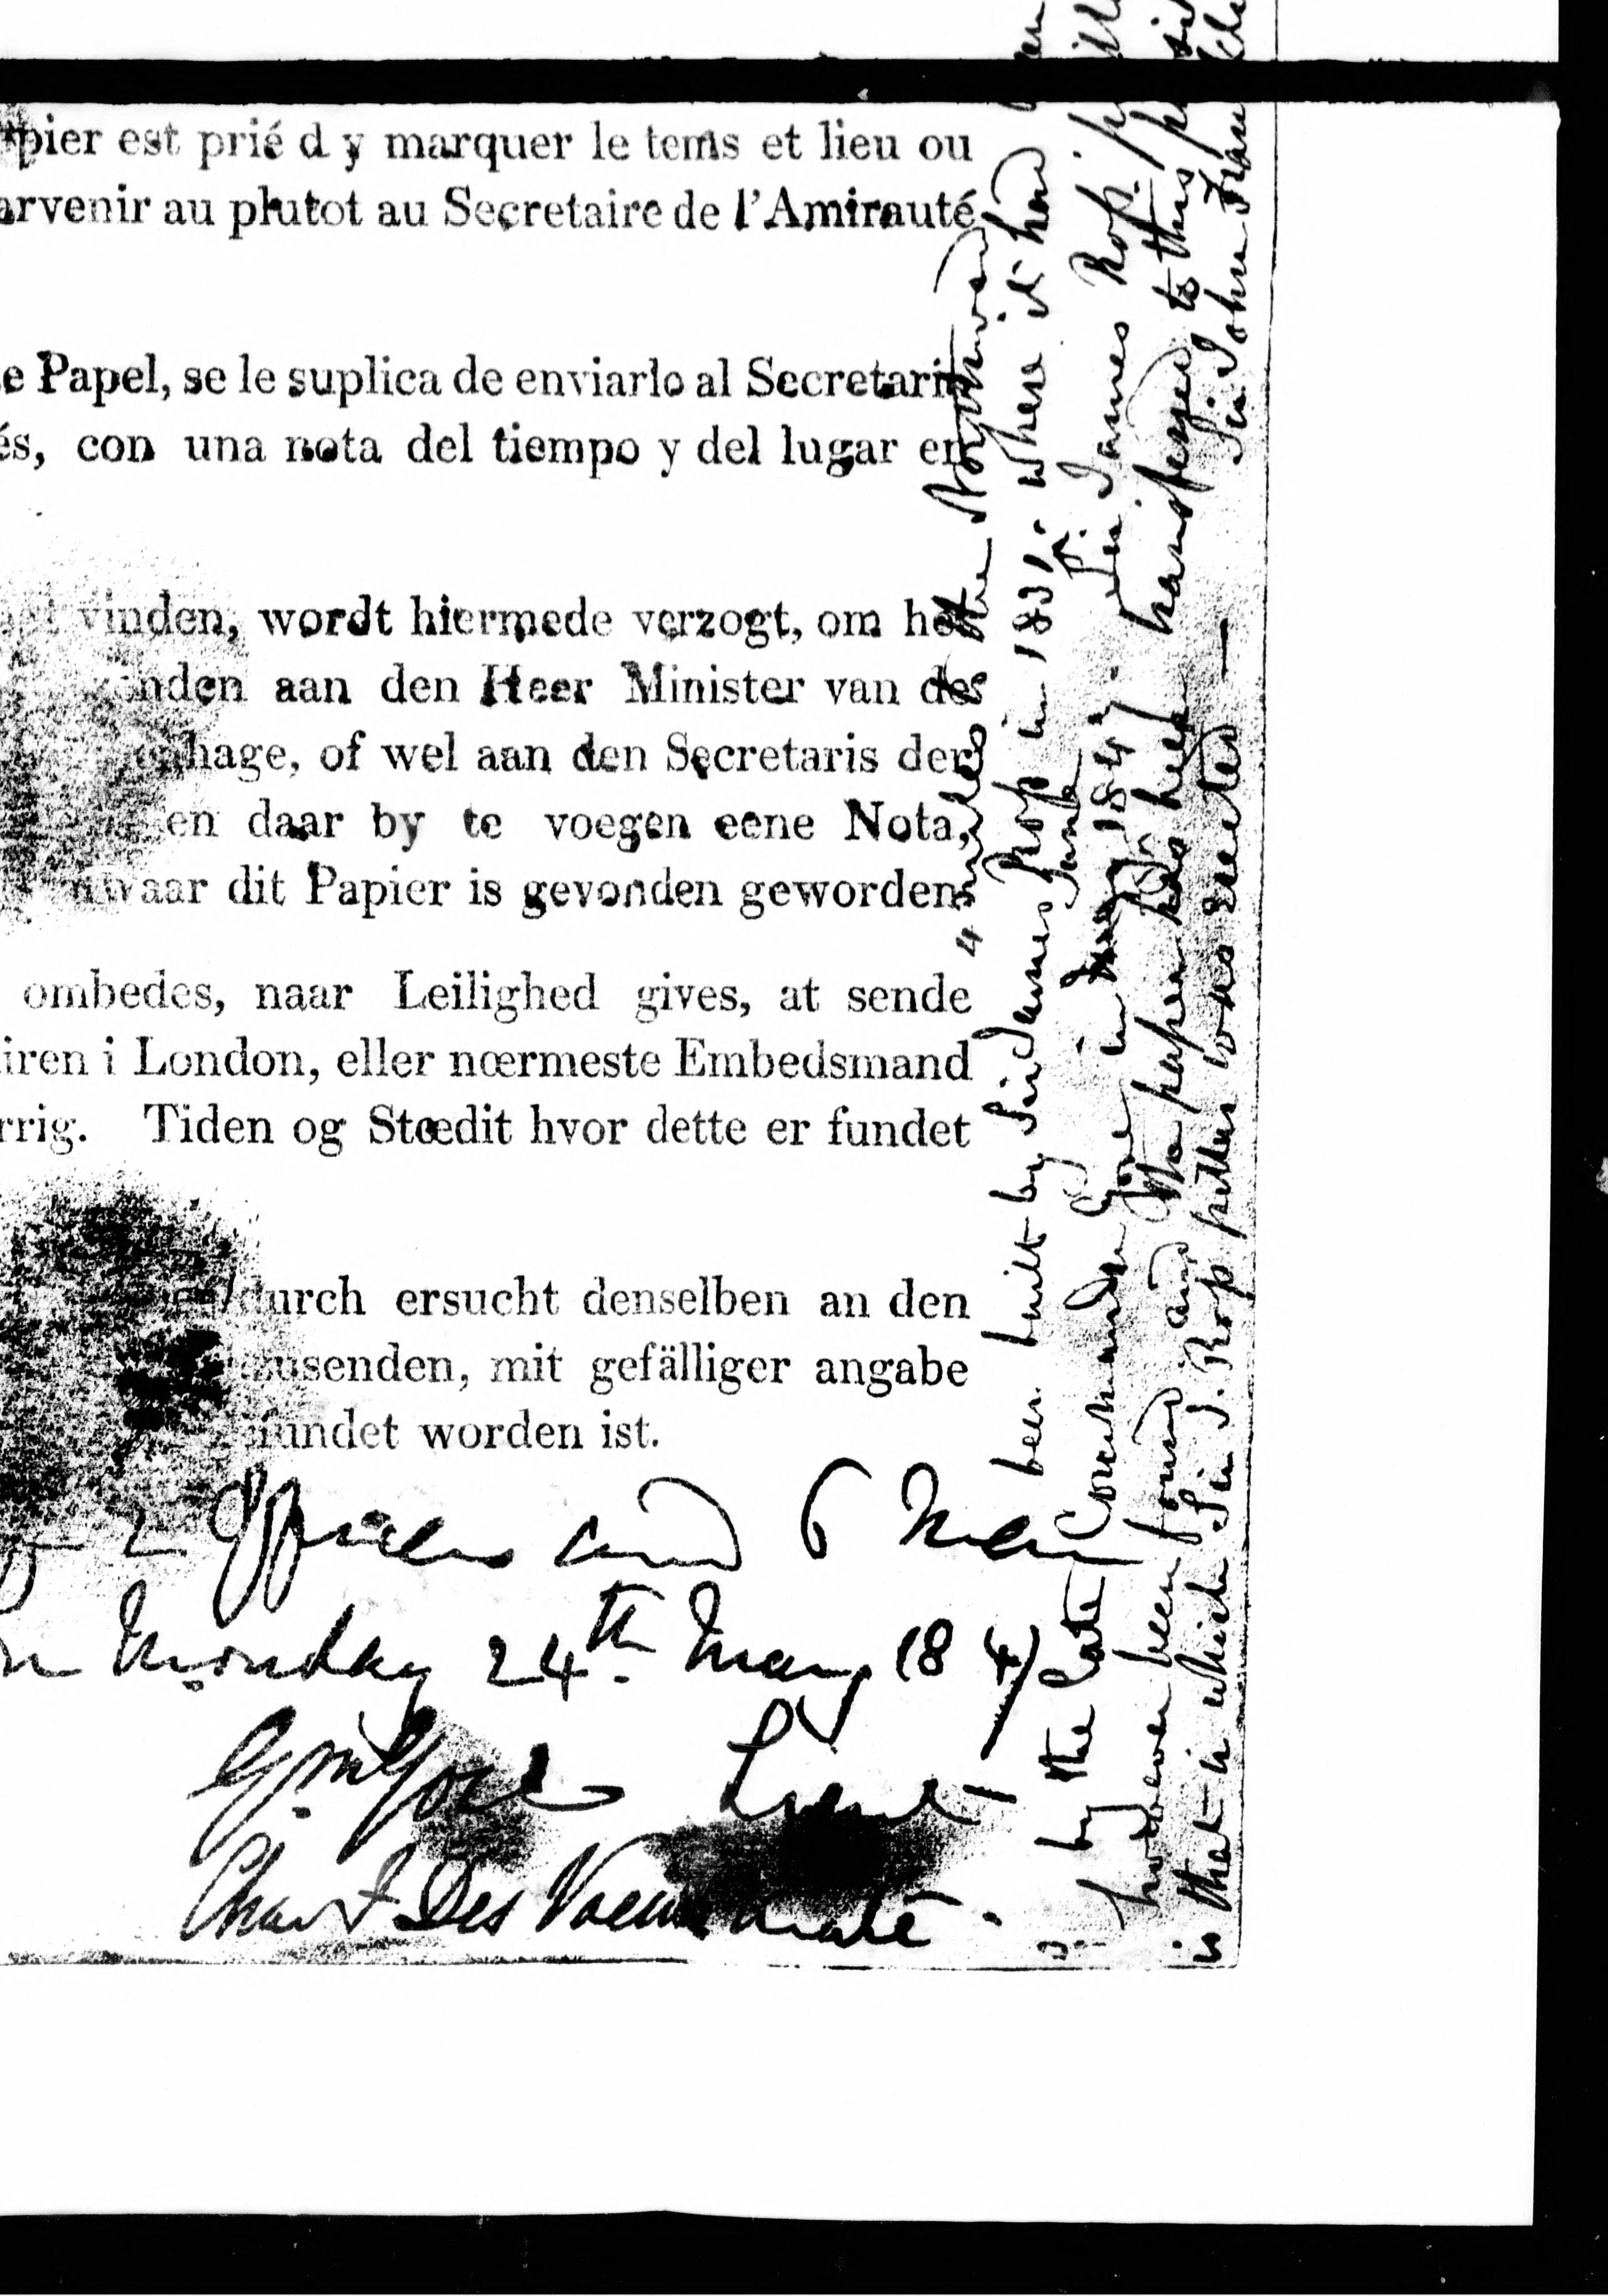 pier est prié d y marquer le tems et lieu ou
arvenir au plutot au Secretaire de l'Amirauté
e Papel, se le suplica de enviarlo al Secretario
és, con una nota del tiempo y del lugar en
vinden, wordt hiermede verzogt, om het
enden aan den Heer Minister van des
hage, of wel aan den Secretaris der
en daar by te voegen eene Nota,
waar dit Papier is gevonden geworden
ombedes, naar Leilighed gives, at sende
iren i London, eller nœrmeste Embedsmand
rrig. Tiden og Stœdit hvor dette er fundet
durch ersucht denselben an den
zusenden, mit gefälliger angabe
fundet worden ist.
2 Officers and 6 Men
on Monday 24th May 1847
Gm Gore Lieut
Chas F Des Voeux mate
4 miles to the Northward
been built by Sir James Ross in 1831, where it had
June
by the late Commander Gore in May 1847. Sir James Ross' p
however been found and the paper has been transferred to this p
is that in which Sir J. Ross pillar was erected — Sir John Fran